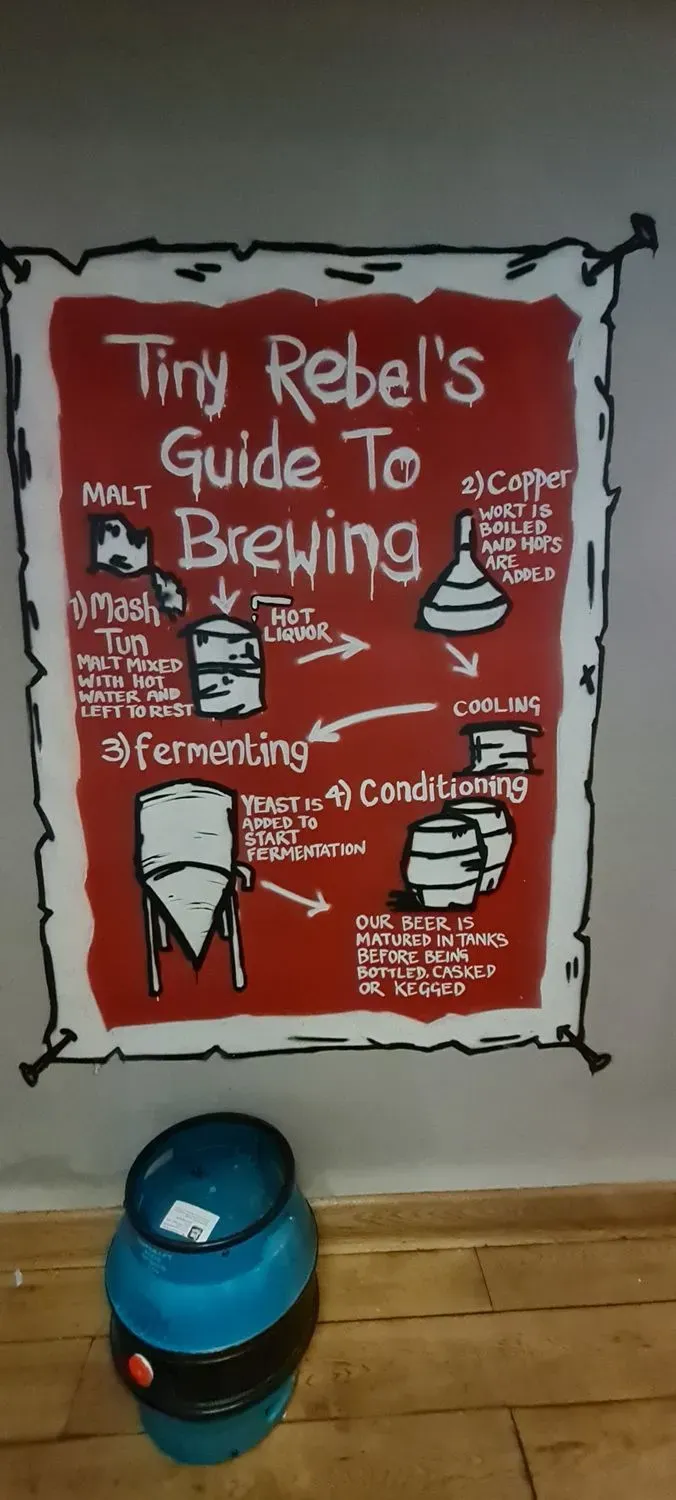 Tiny Rebel's
Guide To
Brewing
MALT
1) Mash
Tun
MALT MIXED
WITH HOT
WATER AND
LEFT TO REST
HOT
LIQUOR
2) Copper
WORT IS
BOILED
AND HOPS
ARE
ADDED
COOLING
3) fermenting
YEAST IS
ADDED TO
START
FERMENTATION
4) Conditioning
OUR BEER IS
MATURED IN TANKS
BEFORE BEING
BOTTLED, CASKED
OR KEGGED